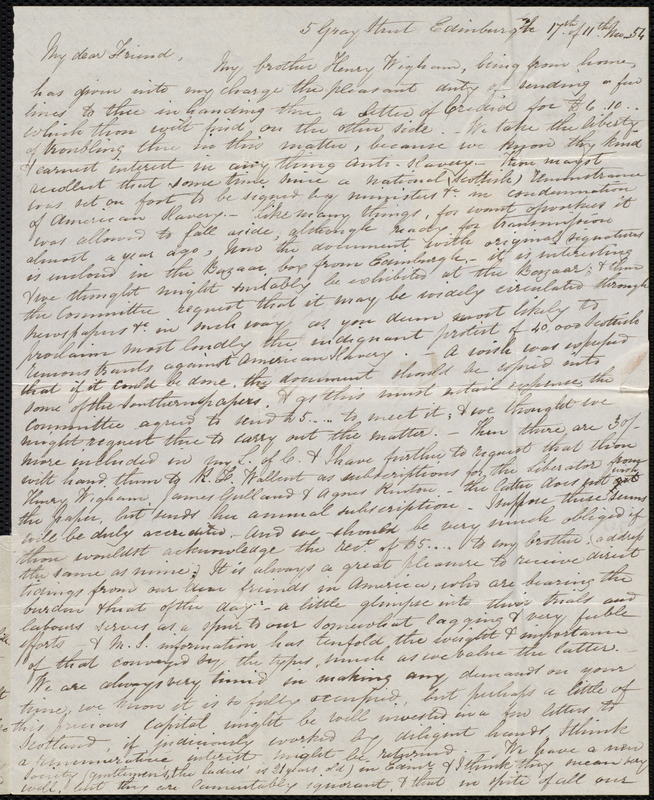 5 Gray Street Edinburgh 17th of 11th Mo. 54
My dear Friend,
My brother Henry Wigham, being from home,
has given into my charge the pleasant duty of sending a few
lines to thee in handing thee a Letter of Credit for £6.10..
which thou wilt find on the other side. - We take the liberty
of troubling thee in this matter, because we know thy kind
& earnest interest in any thing Anti-Slavery. - Thou mayst
recollect that some time since a national (Scottish) Remonstrance
was set on foot, to be signed by ministers &c in condemnation
of American Slavery. - Like many things, for want of
was allowed to fall aside, although ready for transmission
almost a year ago, Now the document with original signatures
is enclosed in the Bazaar box from Edinburgh. - it is interesting
& we thought might suitably be exhibited at the Bazaar; & then
the Committee request that it may be widely circulated through
newspapers &c in such way as you deem most likely to
proclaim most loudly the indignant protest of 40,000 Scottish
remonstrants against American Slavery - A wish was expressed
that if it could be done, the document should be copied into
some of the Southern papers, & as this must entail expense, the
committee agreed to send £5.... to meet it; & we thought we
might request thee to carry out the matter. - Then there are 30/-
more included in my L. of C. & I have further to request that thou
wilt hand them to R. F. Wallcut as subscriptions for the Liberator from
Henry Wigham, James Gulland & Agnes Renton - the latter does not
the paper, but sends her annual subscription. - I suppose these sums
will be duly accredited - And we should be very much obliged if
thou wouldst acknowledge the rect of £5.... to my brother, address
the same as mine; It is always a great pleasure to receive direct
tidings from our dear friends in America, who are bearing the
burden & heat of the day: - a little glimpse into their trials and
labours serves as a spur to our somewhat lagging & very feeble
efforts & M.S. information has tenfold the weight & importance
of that conveyed by the types, much as we value the latter. -
We are always very timid in making any demands on your
time, we know it is so fully occupied, but perhaps a little of
this precious capital might be well invested in a few letters to
Scotland, if judiciously worked by diligent hands I think
a remunerative interest might be returned. We have a new
Society (gentlemen's, the ladies' is 21 years old) in Edinr & I think they mean very
well, but they are lamentably ignorant, & that in spite of all our